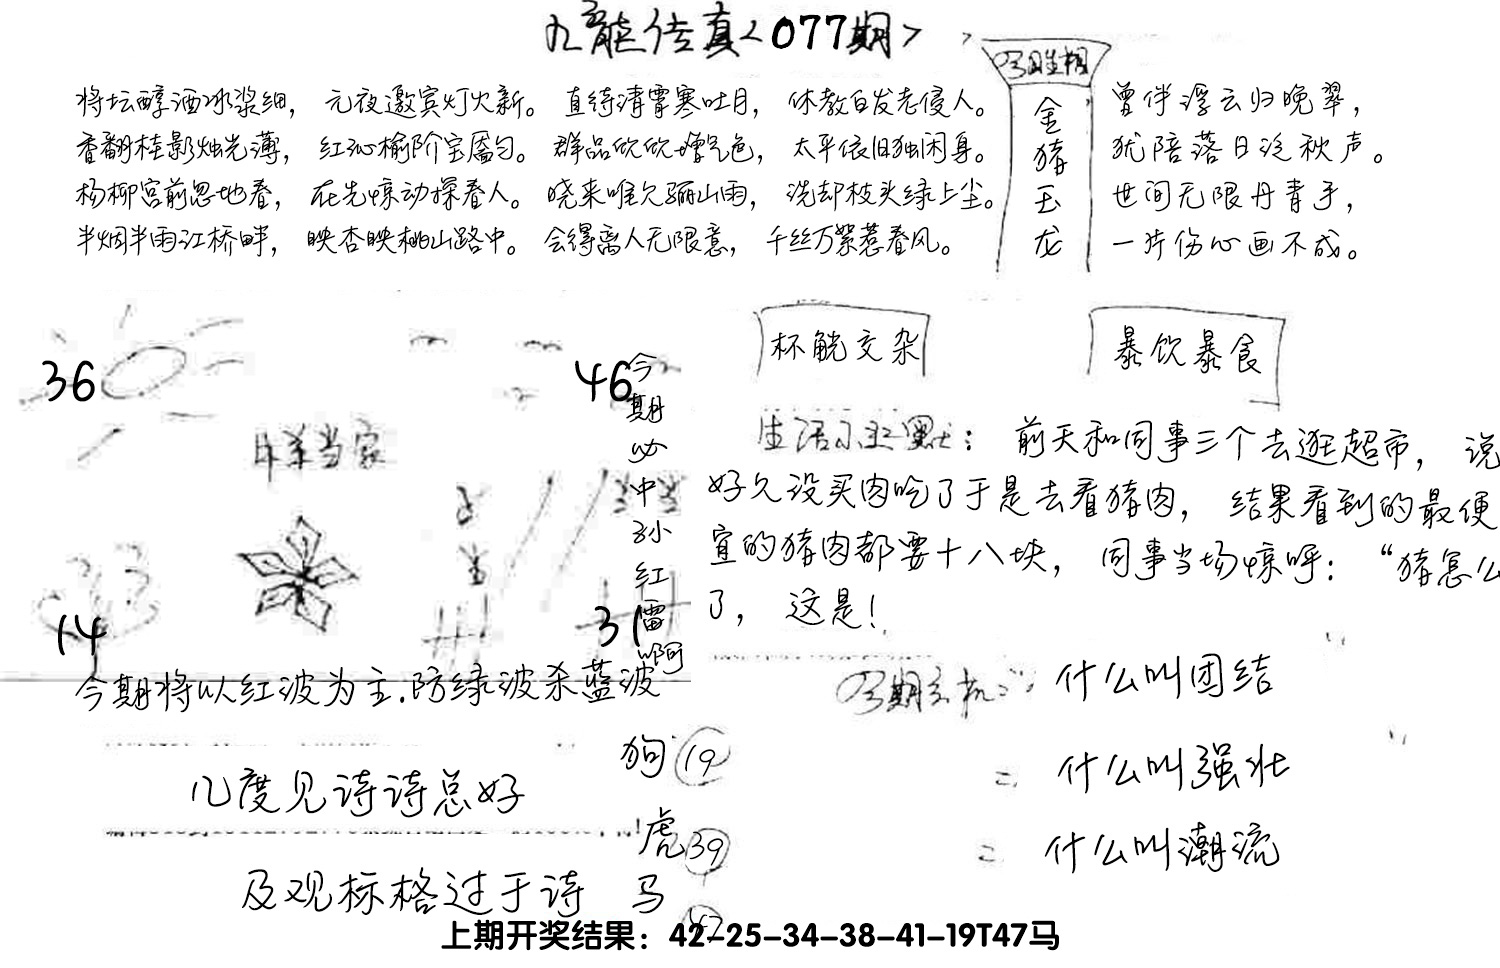 九龙传真<077期>
将坛醇酒冰浆细，元夜邀宾灯火新。直待清霄寒吐月，休教白发老侵人。
香翻桂影烛光薄，红沁榆阶宝靥匀。群品欣欣增气色，太平依旧独闲身。
杨柳宫前忽地春，在先惊动探春人。晓来唯欠骊山雨，洗却枝头绿上尘。
半烟半雨江桥畔，映杏映桃山路中。会得离人无限意，千丝万絮惹春风。
金猪玉龙
曾伴浮云归晚翠，
犹陪落日泛秋声。
世间无限丹青手，
一片伤心画不成。
36
46
今期必中孙红雷啊
当家
14
31
今期将以红波为主.防绿波杀蓝波
杯觥交杂
暴饮暴食
生活小幽默：前天和同事三个去逛超市，说
好久没买肉吃了于是去看猪肉，结果看到的最便
宜的猪肉都要十八块，同事当场惊呼：“猪怎么
了，这是！
什么叫团结
二 什么叫强壮
二 什么叫潮流
几度见诗诗总好
及观标格过于诗
狗 19
虎 39
马
上期开奖结果：42-25-34-38-41-19T47马